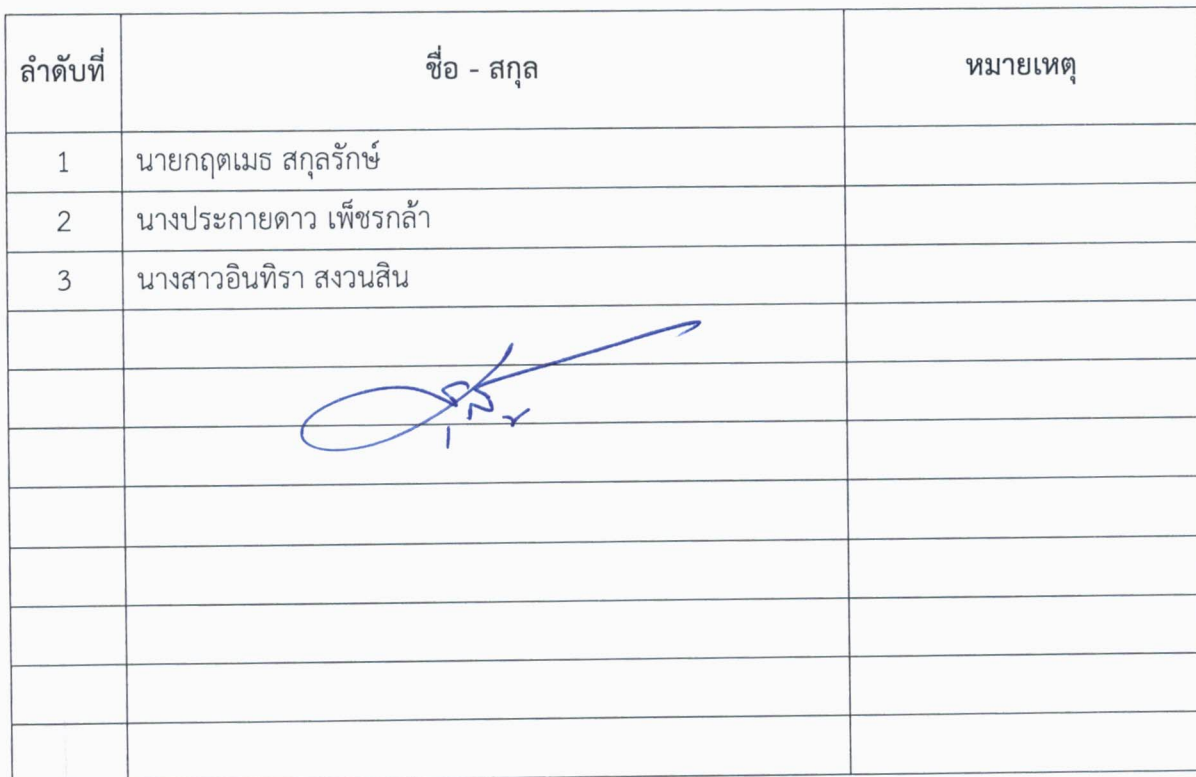 ลำดับที่ ชื่อ - สกุล หมายเหตุ
1 นายกฤตเมธ สกุลรักษ์
2 นางประกายดาว เพ็ชรกล้า
3 นางสาวอินทิรา สงวนสิน